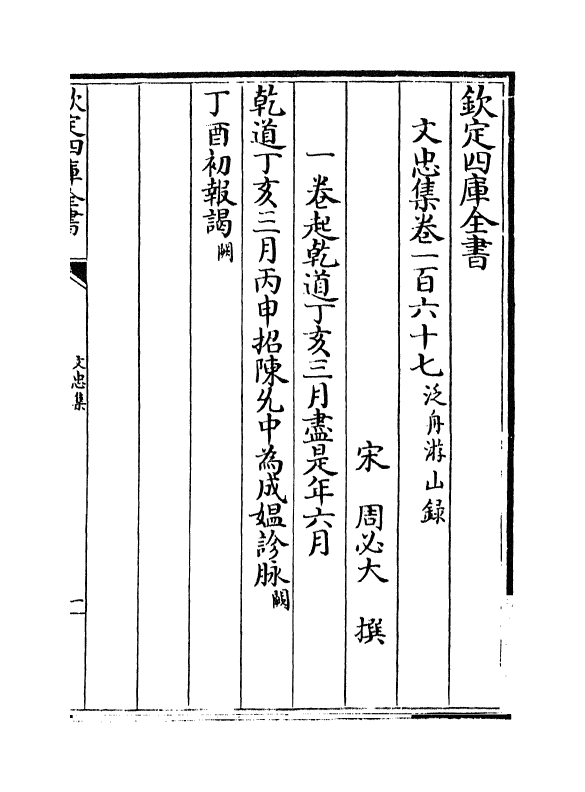 欽定四庫全書
文忠集卷一百六十七 泛舟游山録
宋 周必大 撰
一 卷起乾道丁亥三月盡是年六月
乾道丁亥三月丙申招陳允中為成媪診脉闕
丁酉初報謁闕
欽定四庫全書
文忠集
一